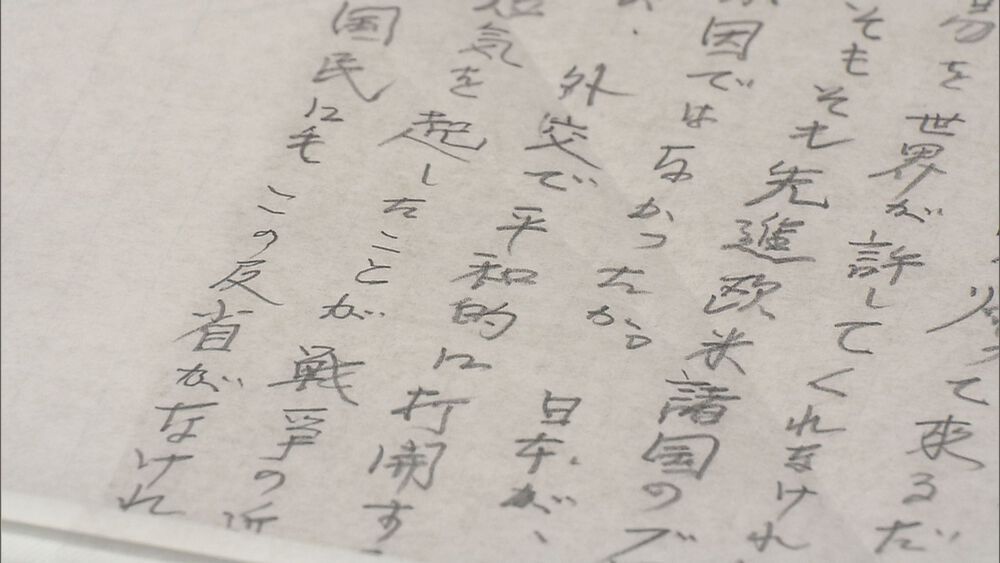 って来るだ
を世界が許してくれなけれ
そもそも先進欧米諸国のブ
因ではなかったから 日本が、
外交で平和的に打開す
気を起したことが戦争の
国民にもこの反省がなけれ